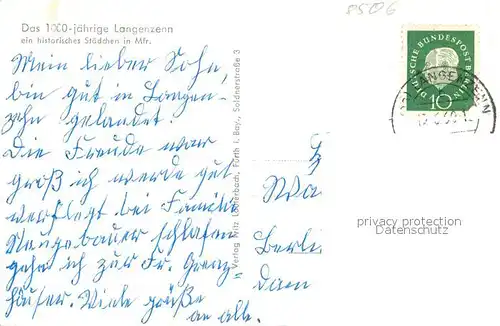 8506
Das 1000-jährige Langenzenn
ein historisches Städchen in Mfr.
DEUTSCHE BUNDESPOST BERLIN
10
LANGENZENN
Mein lieber Sohn,
bin gut in Langen-
zehn gelandet.
Die Freude war
groß ich werde gut
verpflegt bei Familie
schlafen
gehe ich zur Fr. Grenz-
häuser. Viele Grüße
an alle.
Verlag Fritz Lauterbach, Fürth i. Bay., Soldnerstraße 3
Wa
Berli
dam
privacy protection
Datenschutz